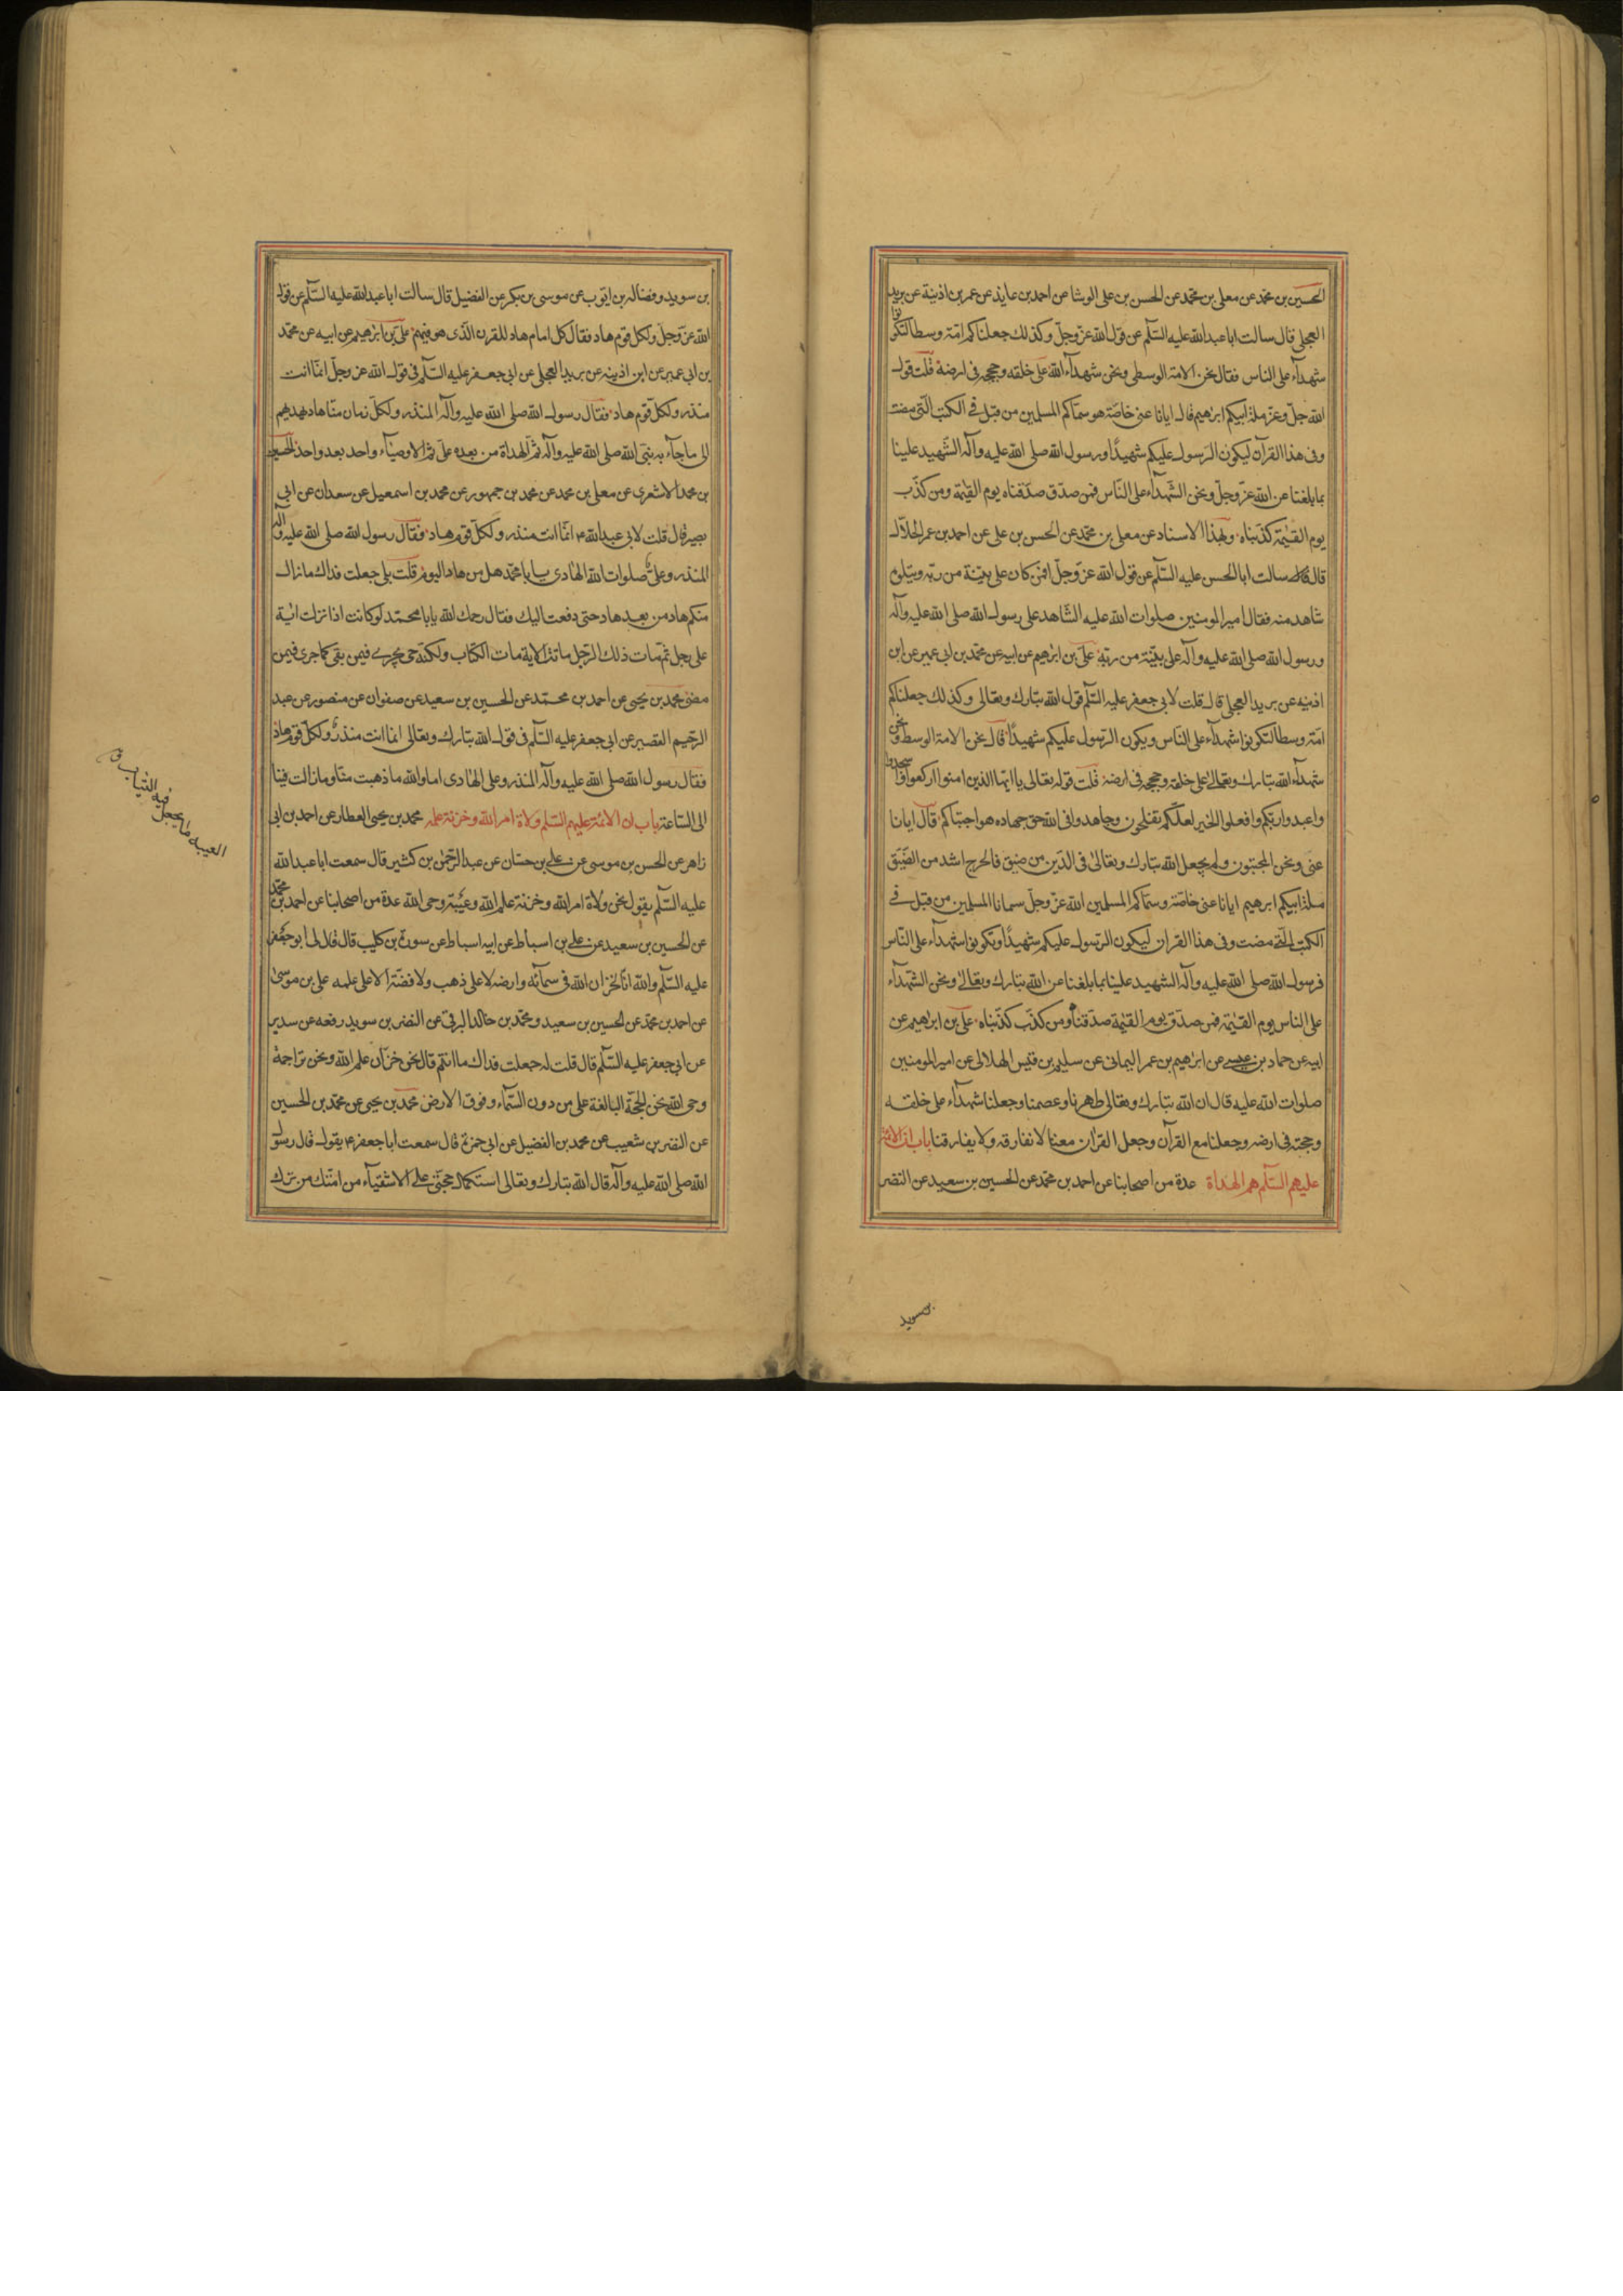 الحسين بن محمد عن معلى بن محمد عن الحسن بن على الوشا عن احمد بن عايذ عن عمر بن اذينة عن بريد
العجلى قال سالت ابا عبد الله عليه السلم عن قول الله عز وجل وكذلك جعلناكم امّة وسطا لتكونوا
شهدآء على الناس فقال نحن الامة الوسطى ونحن شهدآء الله على خلقه وحججه فى ارضه قلت قول
الله جلّ وعز ملة ابيكم ابرهيم قال ايانا عنى خاصّة هو سمّاكم المسلمين من قبل فى الكتب الّتى مضت
وفى هذا القرآن ليكون الرّسول عليكم شهيدًا ورسول الله صلى الله عليه وآله الشّهيد علينا
بما بلغنا عن الله عزّ وجلّ ونحن الشّهدآء على النّاس فمن صدّق صدّقناه يوم القيٰمة ومن كذّب
يوم القيٰمة كذّبناه وبهذا الاسناد عن معلى بن محمّد عن الحسن بن على عن احمد بن عمر الحلاّل
قال سالت ابا الحسن عليه السّلم عن قول الله عزّ وجلّ افمن كان على بيّنة من ربّه ويتلوه
شاهد منه فقال امير المومنين صلوات الله عليه الشّاهد على رسول الله صلى الله عليه وآله
ورسول الله صلى الله عليه وآله على بيّنة من ربّه علىّ بن ابرهيم عن ابيه عن محمّد بن ابى عمير عن ابن
اذينه عن بريد العجلى قال قلت لابى جعفر عليه السّلم قول الله تبارك وتعالى وكذلك جعلناكم
امّة وسطا لتكونوا شهدآء على النّاس ويكون الرّسول عليكم شهيدًا قال نحن الامة الوسط ونحن
شهدآء الله تبارك وتعالى على خلقه وحججه فى ارضه قلت قوله تعالى يا ايّها الذين امنوا اركعوا واسجدوا
واعبدوا ربّكم وافعلوا الخير لعلّكم تفلحون وجاهدوا فى الله حق جهاده هو اجتباكم قال ايانا
عنى ونحن المجتبون ولم يجعل الله تبارك وتعالى فى الدّين من ضيق فالحرج اشد من الضّيق
ملة ابيكم ابرهيم ايانا عنى خاصّة وسمّاكم المسلمين الله عزّ وجلّ سمانا المسلمين من قبل فى
الكتب الّتى مضت وفى هذا القران ليكون الرّسول عليكم شهيدًا وتكونوا شهدآء على النّاس
فرسول الله صلى الله عليه وآله الشهيد علينا بما بلغنا عن الله تبارك وتعالى ونحن الشّهدآء
على الناس يوم القيٰمة فمن صدّق يوم القيٰمة صدّقناه ومن كذّب كذّبناه علىّ بن ابراهيم عن
ابيه عن حماد بن عيسى عن ابرهيم بن عمر اليمانى عن سليم بن قيس الهلالى عن امير المومنين
صلوات الله عليه قال ان الله تبارك وتعالى طهرنا وعصمنا وجعلنا شهدآء على خلقه
وحجته فى ارضه وجعلنا مع القرآن وجعل القرٰان معنا لا نفارقه ولا يفارقنا باب انّ الائمّة
عليهم السّلم هم الهداة عدة من اصحابنا عن احمد بن محمّد عن الحسين بن سعيد عن النضر
بن سويد
بن سويد وفضاله بن ايّوب عن موسى بن بكر عن الفضيل قال سالت ابا عبد الله عليه السّلم عن قول
الله عزّ وجلّ ولكل قوم هاد فقال كل امام هاد للقرن الّذى هو فيهم علىّ بن ابرٰهيم عن ابيه عن محمّد
بن ابى عمير عن ابن اذينه عن بريد العجلى عن ابى جعفر عليه السّلم فى قول الله عز وجلّ انّما انت
منذر ولكلّ قوم هاد فقال رسول الله صلى الله عليه وآله المنذر ولكلّ زمان منّا هاد يهديهم
الى ما جآء به نبىّ الله صلى الله عليه وآله ثمّ الهداة من بعده علىّ ثمّ الاوصيآء واحد بعد واحد الحسين
بن محمد الاشعرى عن معلى بن محمد عن محمد بن جمهور عن محمد بن اسمعيل عن سعدان عن ابى
بصير قال قلت لابى عبد الله ع انّما انت منذر ولكلّ قوم هاد فقال رسول الله صلى الله عليه وآله
المنذر وعلىّ صلوات الله الهٰادى يا با محمّد هل من هاد اليوم قلت بلى جعلت فداك ما زال
منكم هاد من بعد هاد حتى دفعت اليك فقال رحمك الله يا با محمّد لو كانت اذا نزلت اٰية
على رجل ثمّ مات ذلك الرّجل ماتت الاية مات الكتاب ولكنّه حىّ يجرى فيمن بقى كما جرى فيمن
مضى محمد بن يحيى عن احمد بن محمّد عن الحسين بن سعيد عن صفوان عن منصور عن عبد
الرّحيم القصير عن ابى جعفر عليه السّلم فى قول الله تبارك وتعالى انما انت منذرٌ ولكلّ قوم هاد
فقال رسول الله صلى الله عليه وآله المنذر وعلى الهٰادى اما والله ما ذهبت منّا وما زالت فينا
الى السّاعة باب ان الائمة عليهم السّلم ولاة امر الله وخزنة علمه محمد بن يحيى العطار عن احمد بن ابى
زاهر عن الحسن بن موسى عن على بن حسّان عن عبد الرّحمٰن بن كثير قال سمعت ابا عبد الله
عليه السّلم يقول نحن ولاة امر الله وخزنة علم الله وعيبة وحى الله عدة من اصحابنا عن احمد بن محمّد
عن الحسين بن سعيد عن على بن اسباط عن ابيه اسباط عن سورة بن كليب قال قال لى ابو جعفر
عليه السّلم والله انّا لخزان الله فى سمآئه وارضه لا على ذهب ولا فضّة الا على علمه على بن موسىٰ
عن احمد بن محمّد عن الحسين بن سعيد ومحمّد بن خالد البرقى عن النضر بن سويد رفعه عن سدير
عن ابى جعفر عليه السّلم قال قلت له جعلت فداك ما انتم قال نحن خزّان علم الله ونحن تراجمة
وحى الله نحن الحجّة البالغة على من دون السّمآء وفوق الارض محمّد بن يحيى عن محمّد بن الحسين
عن النضر بن شعيب عن محمد بن الفضيل عن ابى حمزة قال سمعت ابا جعفر ع يقول قال رسول
الله صلى الله عليه وآله قال الله تبارك وتعالى استكمال حجّتى على الاشقيآء من امّتك من ترك
العيبه ما يجعل فيه الثياب ق